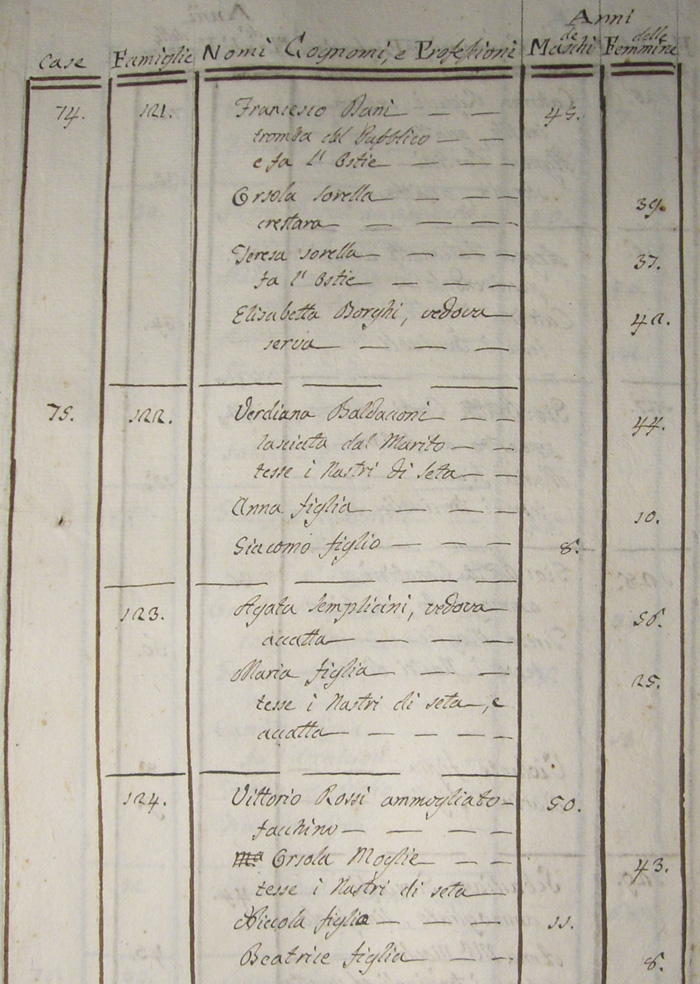 Anni
Case Famiglie Nomi Cognomi, e Professioni de Maschi delle Femmine
74. 121. Francesco Bani 45.
tromba del Pubblico
e fa l' Ostie
Orsola sorella 39.
crestara
Teresa sorella 37.
fa l' Ostie
Elisabetta Borghi, vedova
serva
75. 122. Verdiana Baldaconi 44.
lasciata dal Marito
tesse i Nastri di seta
Anna figlia 10.
Giacomo figlio 8.
123. Agata Semplicini, vedova 56.
accatta
Maria figlia 25.
tesse i Nastri di seta, e
accatta
124. Vittorio Rossi ammogliato 50.
facchino
Orsola Moglie 43.
tesse i Nastri di seta
Niccola figlio 11.
Beatrice figlia 8.